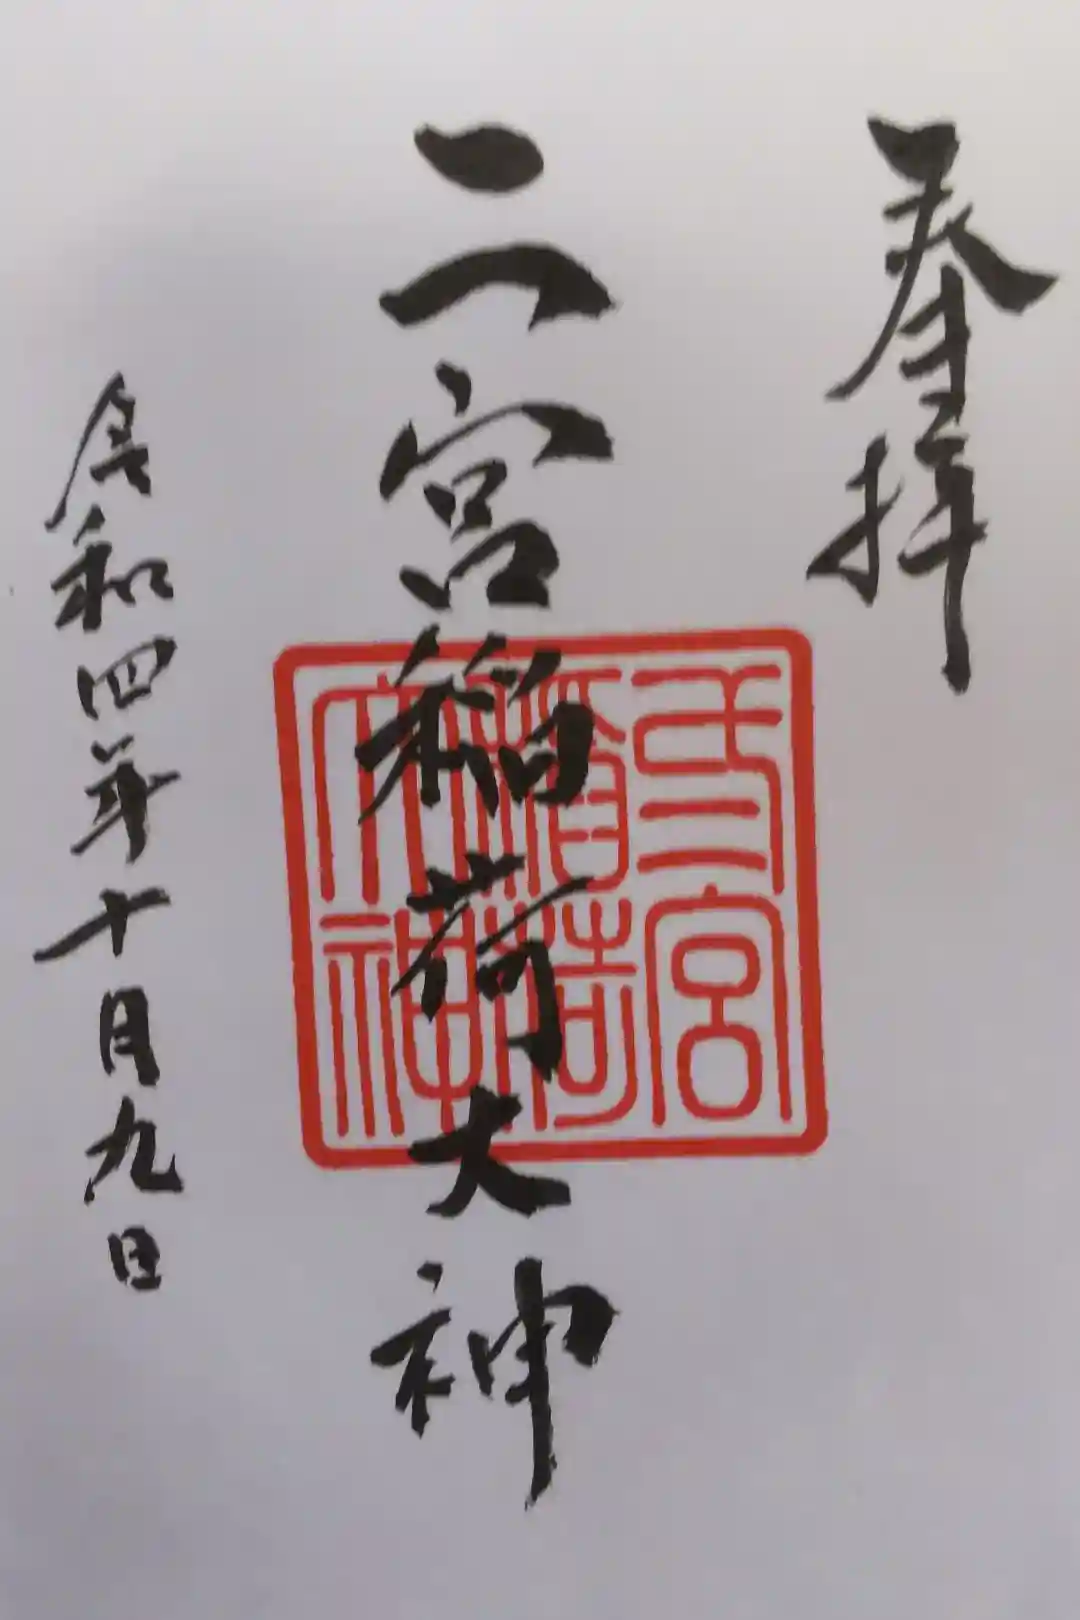 奉拝
二宮稲荷大神
正二宮
稲荷
大神
令和四年十月九日